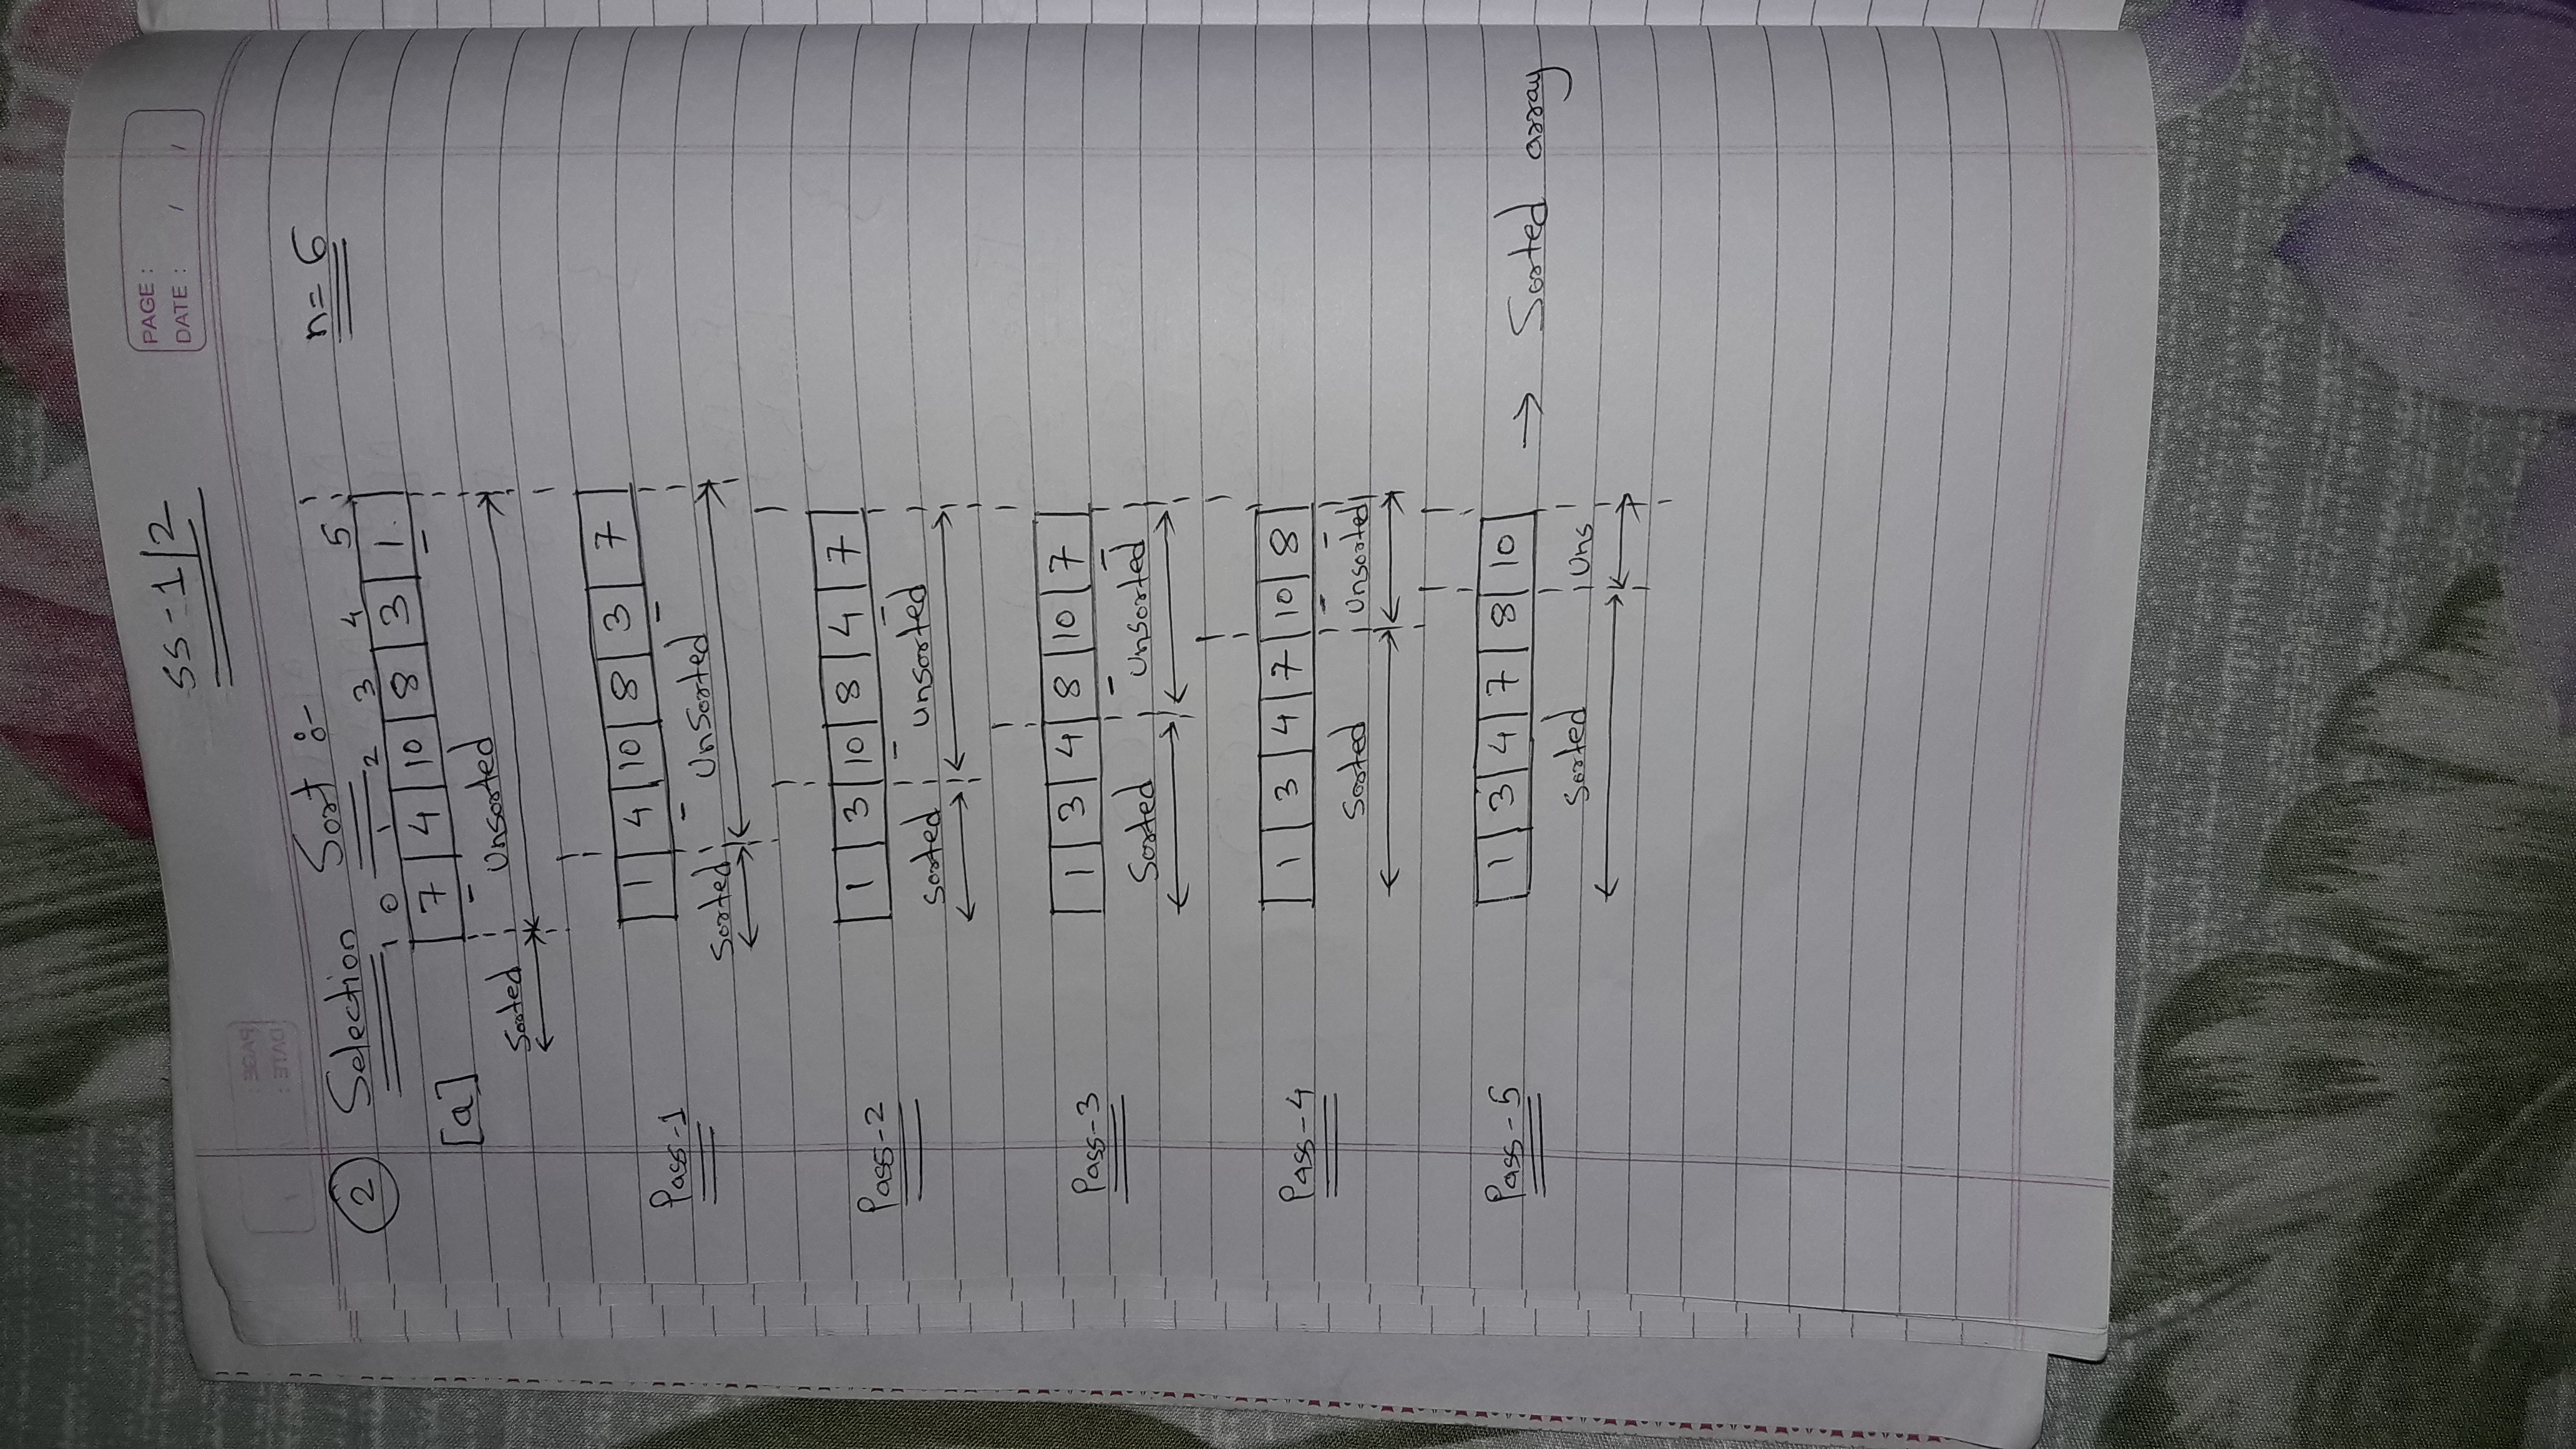 SS-1/2
PAGE :
DATE : / /
② Selection Sort :-
n = 6
0 1 2 3 4 5
[a] 7 4 10 8 3 1
Sorted Unsorted
Pass-1 1 4 10 8 3 7
Sorted UnSorted
Pass-2 1 3 10 8 4 7
sorted unsorted
Pass-3 1 3 4 8 10 7
Sorted Unsorted
Pass-4 1 3 4 7 10 8
Sorted Unsorted
Pass-5 1 3 4 7 8 10 → Sorted array
Sorted Uns